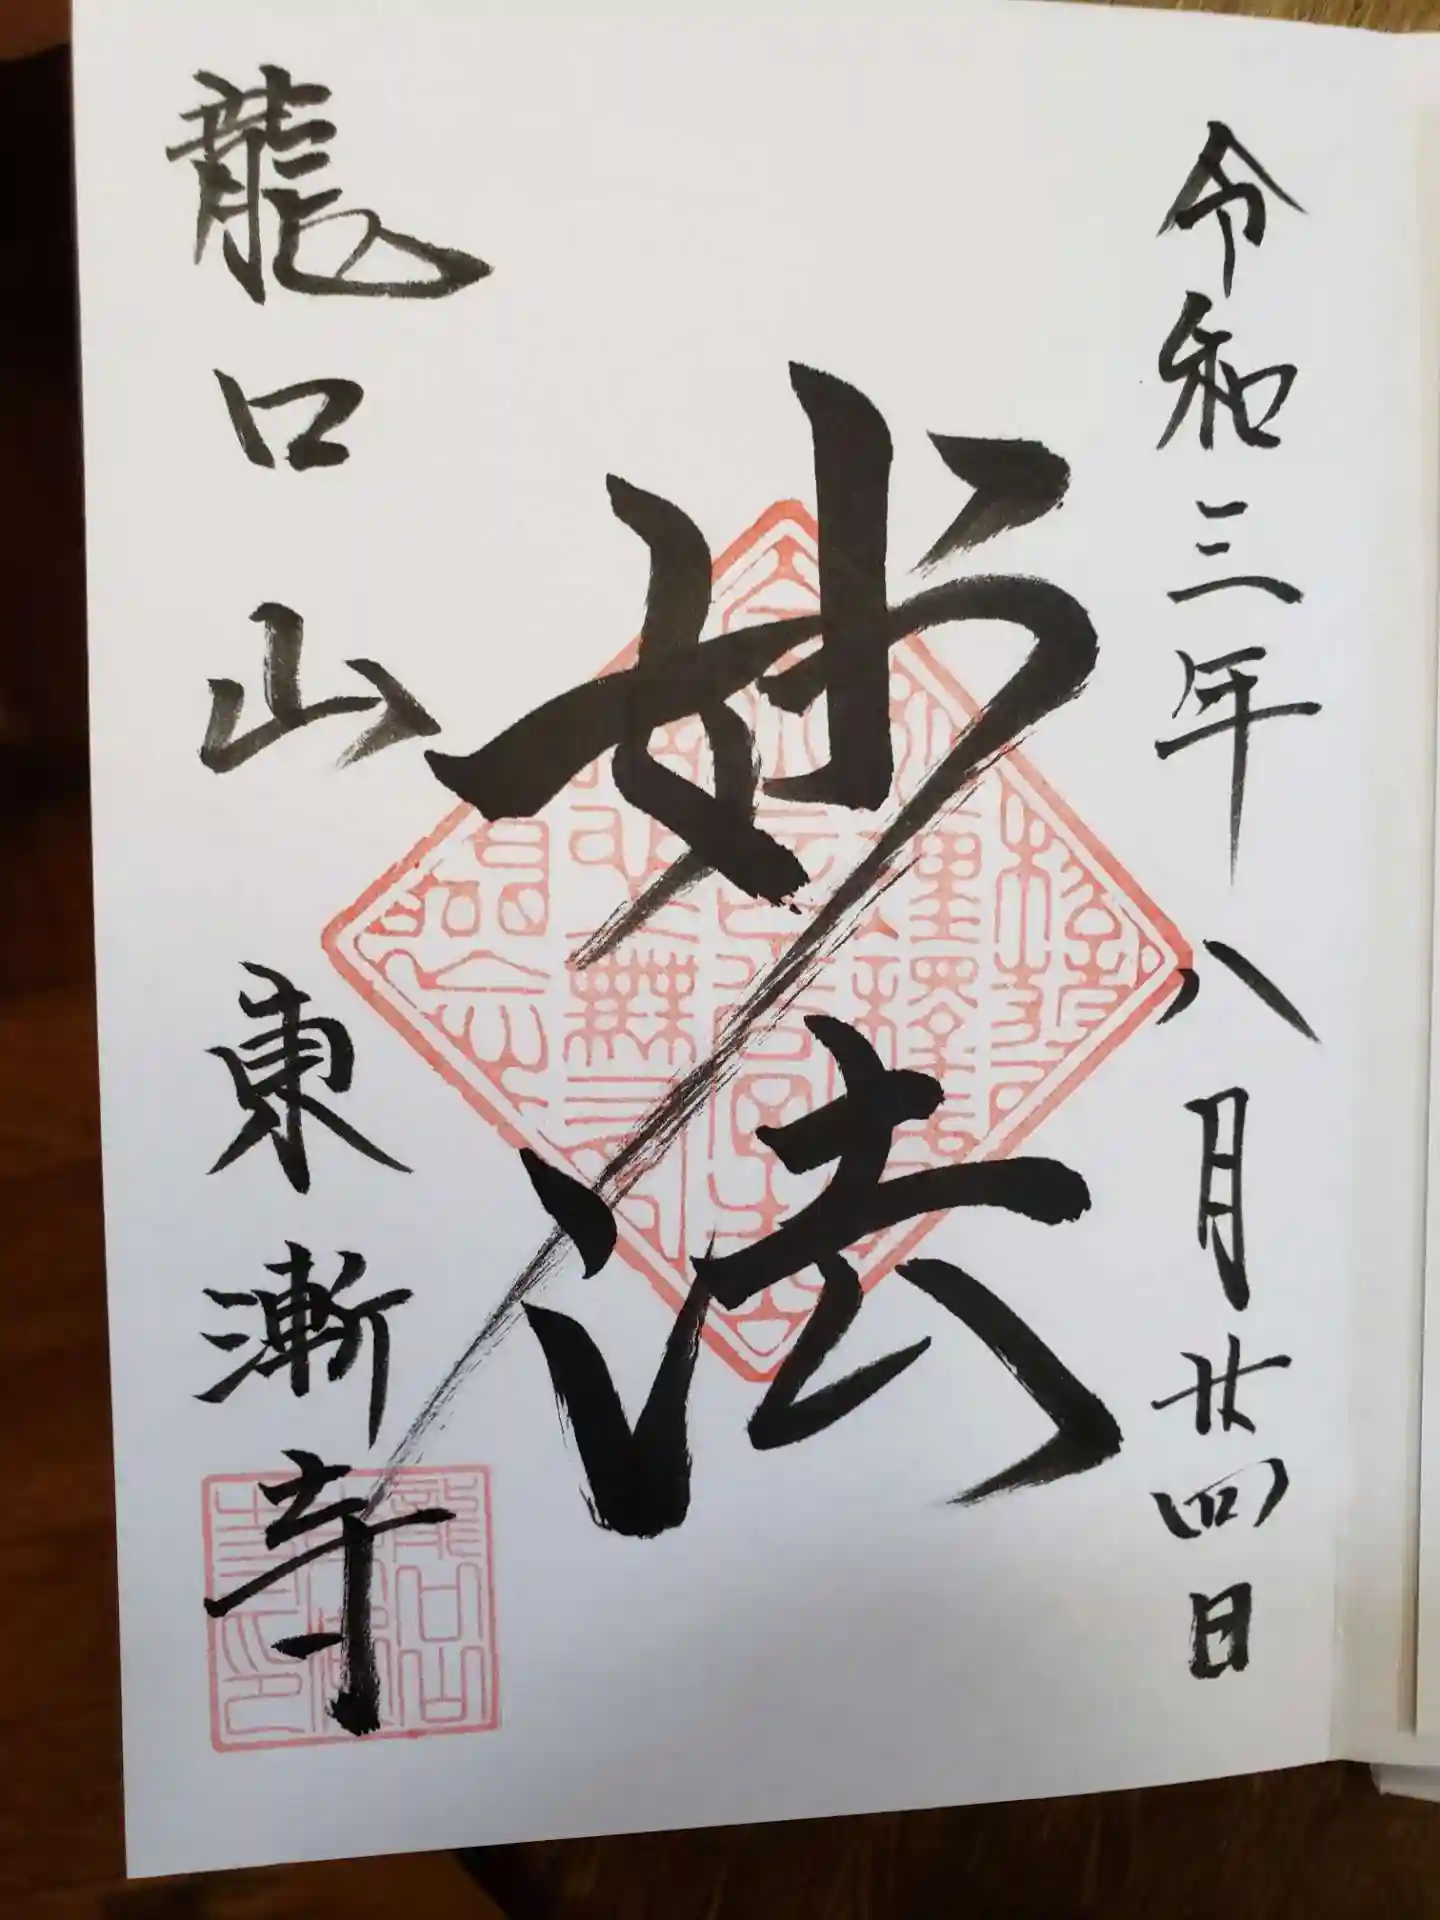 令和三年八月廿四日
妙法
龍口山東漸寺